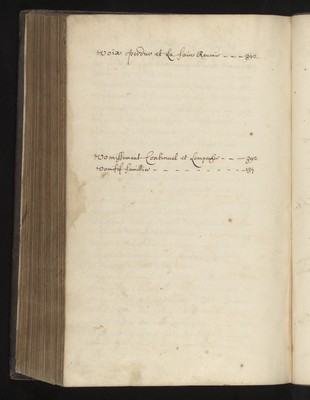 Voix perdue et La faire Revenir - - - 340
Vomissement Continuel et Lempescher - - - 342
Vomitif familier - - - - - - - - - -